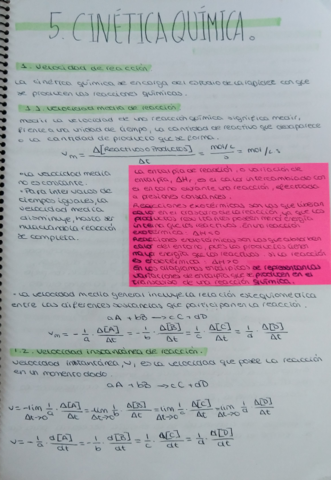 5. CINÉTICA QUÍMICA.
1. Velocidad de reacción
La cinética química se encarga del estudio de la rapidez con que
se producen las reacciones químicas.
1.1. Velocidad media de reacción.
medir la velocidad de una reacción química significa medir,
frente a una unidad de tiempo, la cantidad de reactivo que desaparece
o la cantidad de producto que se forma.
Vm = Δ[Reactivos o Productos] / Δt = mol/L / s = mol/L s
- La velocidad media
no es constante.
- Para intervalos de
tiempos iguales, la
velocidad media
disminuye, hasta se
nula cuando la reacción
se completa.
La entalpía de reacción, o variación de
entalpía, ΔH, es el calor intercambiado con
el entorno durante una reacción, efectuada
a presión constante.
Reacciones exotérmicas son las que
calor en el entorno de la reacción, ya que los
productos resultantes poseen menor energía
interna que los reactivos. En la reacción
exotérmica ΔH<0
Reacciones endotérmicas son las que
calor del entorno, pues los productos tienen
mayor energía que los reactivos. Si la reacción
es endotérmica ΔH>0
En los diagramas entálpicos se representan las
variaciones de entalpía que se producen en el
transcurso de una reacción química.
- La velocidad media general incluye la relación estequiométrica
entre las diferentes sustancias que participan en la reacción.
aA + bB → cC + dD
Vm = - 1/a Δ[A]/Δt = - 1/b Δ[B]/Δt = 1/c Δ[C]/Δt = 1/d Δ[D]/Δt
1.2. Velocidad instantánea de reacción.
Velocidad instantánea, v, es la velocidad que posee la reacción
en un momento dado.
aA + bB → cC + dD
v = -lim Δt→0 1/a · Δ[A]/Δt = -lim Δt→0 1/b · Δ[B]/Δt = lim Δt→0 1/c · Δ[C]/Δt = lim Δt→0 1/d · Δ[D]/Δt
v = - 1/a · d[A]/dt = - 1/b · d[B]/dt = 1/c · d[C]/dt = 1/d · d[D]/dt